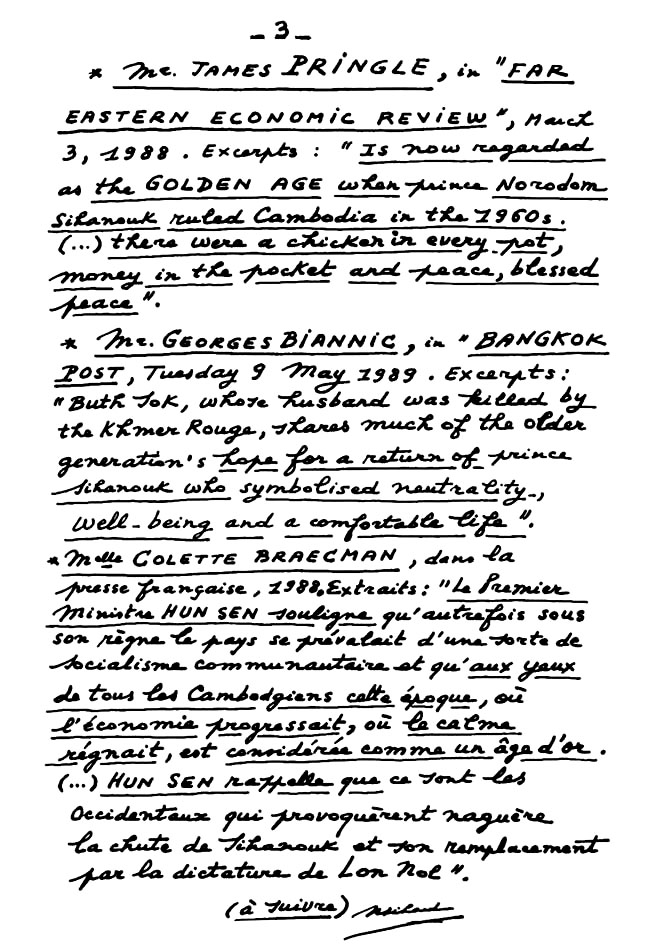 _ 3 _
* Mr. JAMES PRINGLE, in "FAR
EASTERN ECONOMIC REVIEW", March
3, 1988. Excerpts : "Is now regarded
as the GOLDEN AGE when prince Norodom
Sihanouk ruled Cambodia in the 1960s.
(...) there were a chicken in every pot,
money in the pocket and peace, blessed
peace".
* Mr. GEORGES BIANNIC, in "BANGKOK
POST, Tuesday 9 May 1989. Excerpts :
"Buth Sok, whose husband was killed by
the Khmer Rouge, shares much of the older
generation's hope for a return of prince
Sihanouk who symbolised neutrality,
well-being and a comfortable life".
* Melle COLETTE BRAECMAN, dans la
presse française, 1988. Extraits : "Le Premier
Ministre HUN SEN souligne qu'autrefois sous
son règne le pays se prévalait d'une sorte de
socialisme communautaire et qu'aux yeux
de tous les Cambodgiens cette époque, où
l'économie progressait, où le calme
régnait, est considérée comme un âge d'or.
(...) HUN SEN rappelle que ce sont les
Occidentaux qui provoquèrent naguère
la chute de Sihanouk et son remplacement
par la dictature de Lon Nol".
(à suivre)